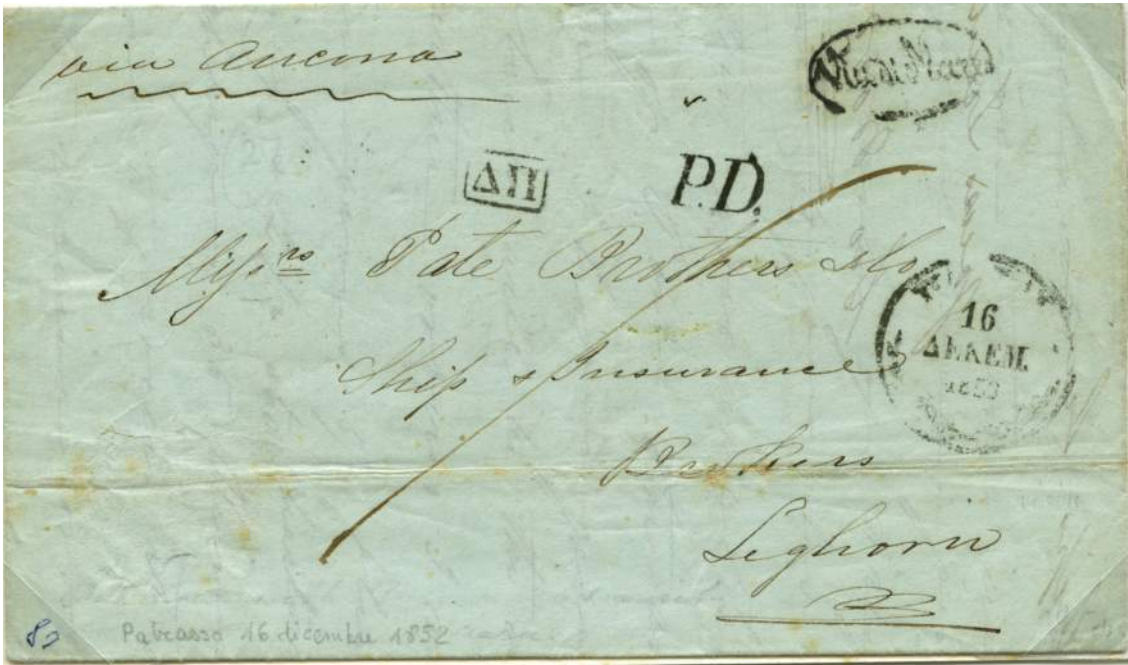 via Ancona
Via di Mare
ΔΠ
P.D.
Messrs Pate Brothers & Co
Ship & Insurance
Brokers
Leghorn
16
ΔΕΚΕΜ.
Patrasso 16 dicembre 1852